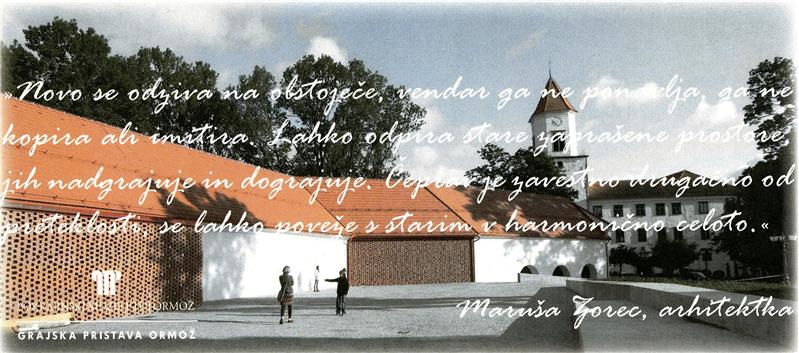 »Novo se odziva na obstoječe, vendar ga ne ponavlja, ga ne
kopira ali imitira. Lahko odpira stare zaprašene prostore,
jih nadgrajuje in dograjuje. Čeprav je zavestno drugačno od
preteklosti, se lahko poveže s starim v harmonično celoto.«
Maruša Zorec, arhitektka
ORMOŽ
GRAJSKA PRISTAVA ORMOŽ